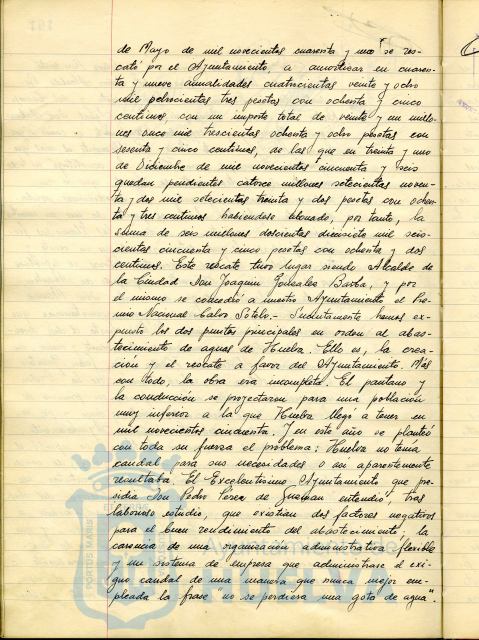 de Mayo de mil novecientos cuarenta y uno se res-
cató por el Ayuntamiento, a amortizar en cuaren-
ta y nueve anualidades cuatrocientas veinte y ocho
mil seiscientas tres pesetas con ochenta y cinco
centimos, con un importe total de veinte y un millo-
nes once mil trescientas ochenta y ocho pesetas con
sesenta y cinco centimos, de las que en treinta y uno
de Diciembre de mil novecientos cincuenta y seis
quedan pendientes catorce millones setecientas noven-
ta y dos mil setecientas treinta y dos pesetas con ochen-
ta y tres centimos habiendose abonado, por tanto, la
suma de seis millones doscientas dieciseis mil seis-
cientas cincuenta y cinco pesetas con ochenta y dos
centimos. Este rescate tuvo lugar siendo Alcalde de
la Ciudad Don Joaquin Gonzalez Barba, y por
el mismo se concedió a nuestro Ayuntamiento el Pre-
mio Nacional Calvo Sotelo.- Sucintamente hemos ex-
puesto los dos puntos principales en orden al abas-
tecimiento de aguas de Huelva. Ello es, la crea-
ción y el rescate a favor del Ayuntamiento. Mas
con todo, la obra era incompleta. El pantano y
la conducción se proyectaron para una población
muy inferior a la que Huelva llegó a tener en
mil novecientos cincuenta. Y en este año se planteó
con toda su fuerza el problema; Huelva no tenia
caudal para sus necesidades o asi aparentemente
resultaba. El Excelentísimo Ayuntamiento que pre-
sidia Don Pedro Perez de Guzman entendió, tras
laborioso estudio, que existian dos factores negativos
para el buen rendimiento del abastecimiento; la
carencia de una organización administrativa flexible
y un sistema de empresa que administrase el exi-
guo caudal de una manera que nunca mejor em-
pleada la frase "no se perdiera una gota de agua".
PORTUS MARIS